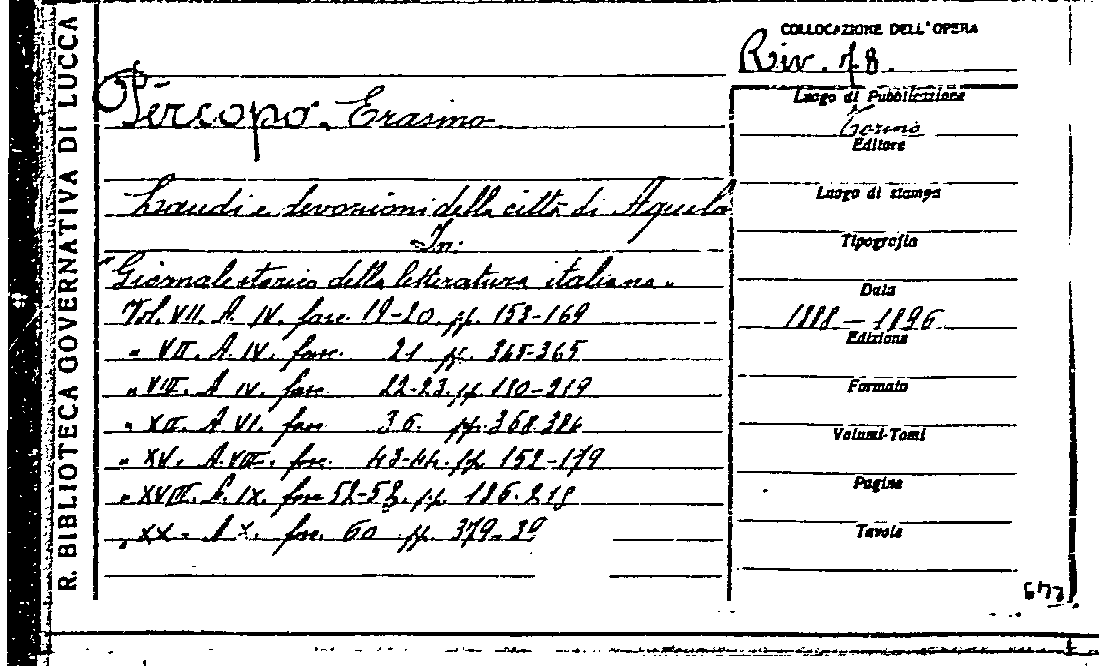 R. BIBLIOTECA GOVERNATIVA DI LUCCA
COLLOCAZIONE DELL'OPERA
Riv. 78.
Pèrcopo. Erasmo
Laudi e devozioni della città di Aquila
In:
"Giornale storico della letteratura italiana"
Vol. VII. A. IV. fasc. 19-20. pp. 153-169
" VII. A. IV. fasc. 21 pp. 345-365
" VIII. A. IV. fasc. 22-23. pp. 180-219
" XII. A. VI. fasc 36. pp. 368-384
" XV. A. VIII. fasc. 43-44. pp. 152-179
" XVIII. A. IX. fasc 52-53. pp. 186-218
" XX. A. X. fasc. 60 pp. 379-39
Luogo di Pubblicazione
Torino
Editore
Luogo di stampa
Tipografia
Data
1888 - 1896
Edizione
Formato
Volumi-Tomi
Pagine
Tavole